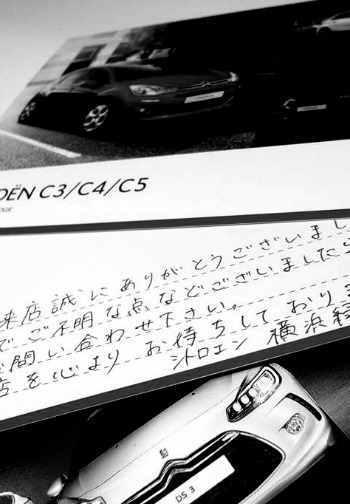 OËN C3/C4/C5
来店誠にありがとうございまし
でご不明な点などございましたら
問い合わせ下さい。
店を心よりお待ちしておりま
シトロエン 横浜
DS 3